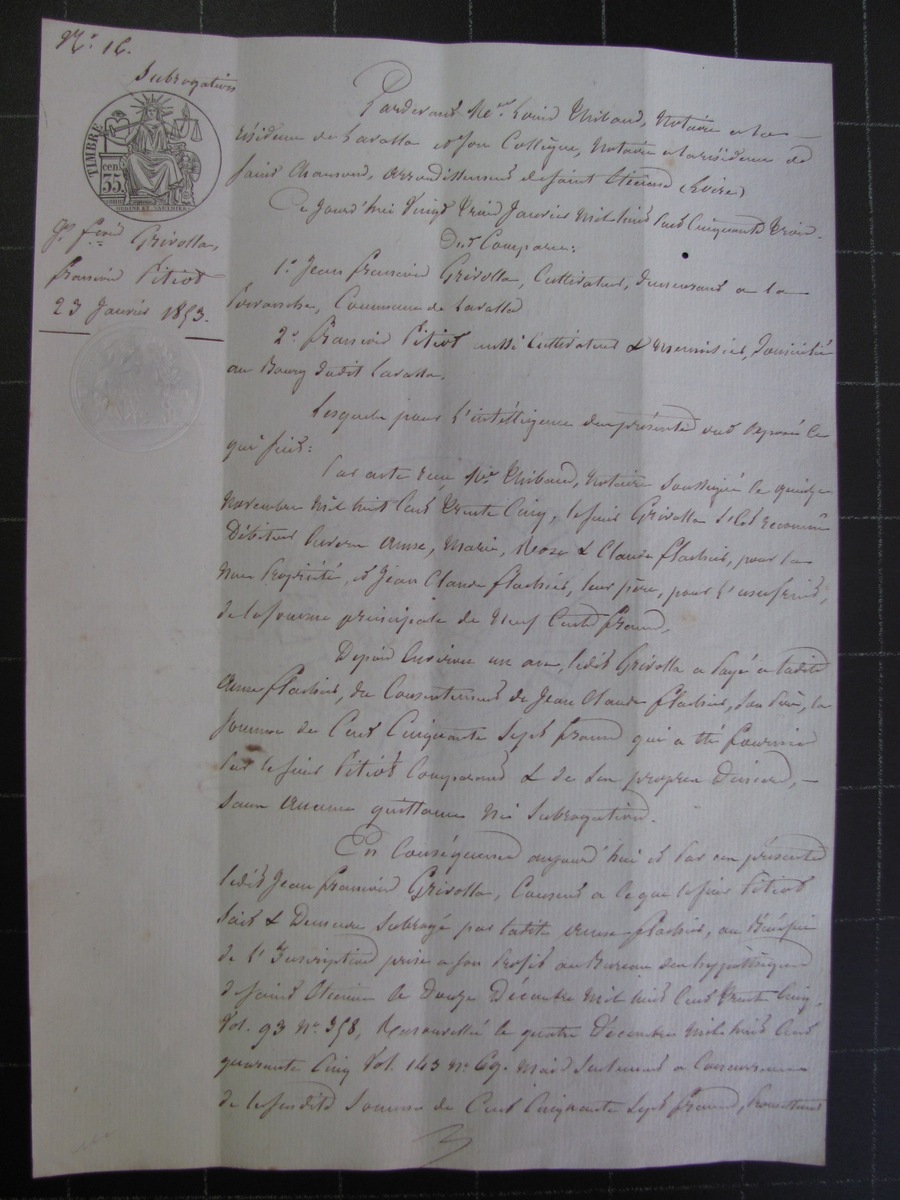 N.° 16.
Subrogation
TIMBRE
35
cen
Grivolla,
françois Pitiot
23 Janvier 1853.
Pardevant Me. Louis Thibaud, Notaire a la
résidence de Lavalla et son Collègue, Notaire a la résidence de
saint Chamond, arrondissement de Saint Etienne (Loire)
Ce jourd'hui Vingt Trois Janvier Mil huit Cent Cinquante Trois.
Ont Comparu:
1.° Jean françois Grivolla, Cultivateur, demeurant a la
Commune de Lavalla
2.° françois Pitiot aussi Cultivateur & menuisier, domicilié
au Bourg dudit Lavalla,
Lesquels pour l'intelligence des présentes ont exposé ce
qui suit:
Par acte reçu Me. Thibaud, Notaire soussigné le quinze
Novembre Mil huit Cent Trente Cinq, le sieur Grivolla s'est reconnu
Débiteur Envers Anne, Marie, Rose & Claude flachier, pour la
Nue Propriété, et Jean Claude flachier, leur père, pour l'usufruit,
de la somme principale de Neuf Cents francs,
Depuis Environ un an, ledit Grivolla a payé a ladite
Anne flachier, du Consentement de Jean Claude flachier, son Père, la
somme de Cent Cinquante Sept francs qui a été fournie
Par le sieur Pitiot Comparant & de ses propres Deniers, –
sans Aucune quittance Ni Subrogation.
En Conséquence aujourd'hui et Par ces présentes
ledit Jean françois Grivolla, Consent a ce que le sieur Pitiot
soit & Demeure Subrogé par ladite Anne flachier, au Bénéfice
de l'Inscription prise a son Profit au Bureau des hypothèques
de saint Etienne le Douze Décembre Mil huit Cent Trente Cinq,
Vol. 93 N.° 358, Renouvellé le quatre Décembre Mil huit Cent
quarante Cinq Vol. 143 N.° 69. Mais Seulement a Concurrence
de la susdite Somme de Cent Cinquante Sept francs,